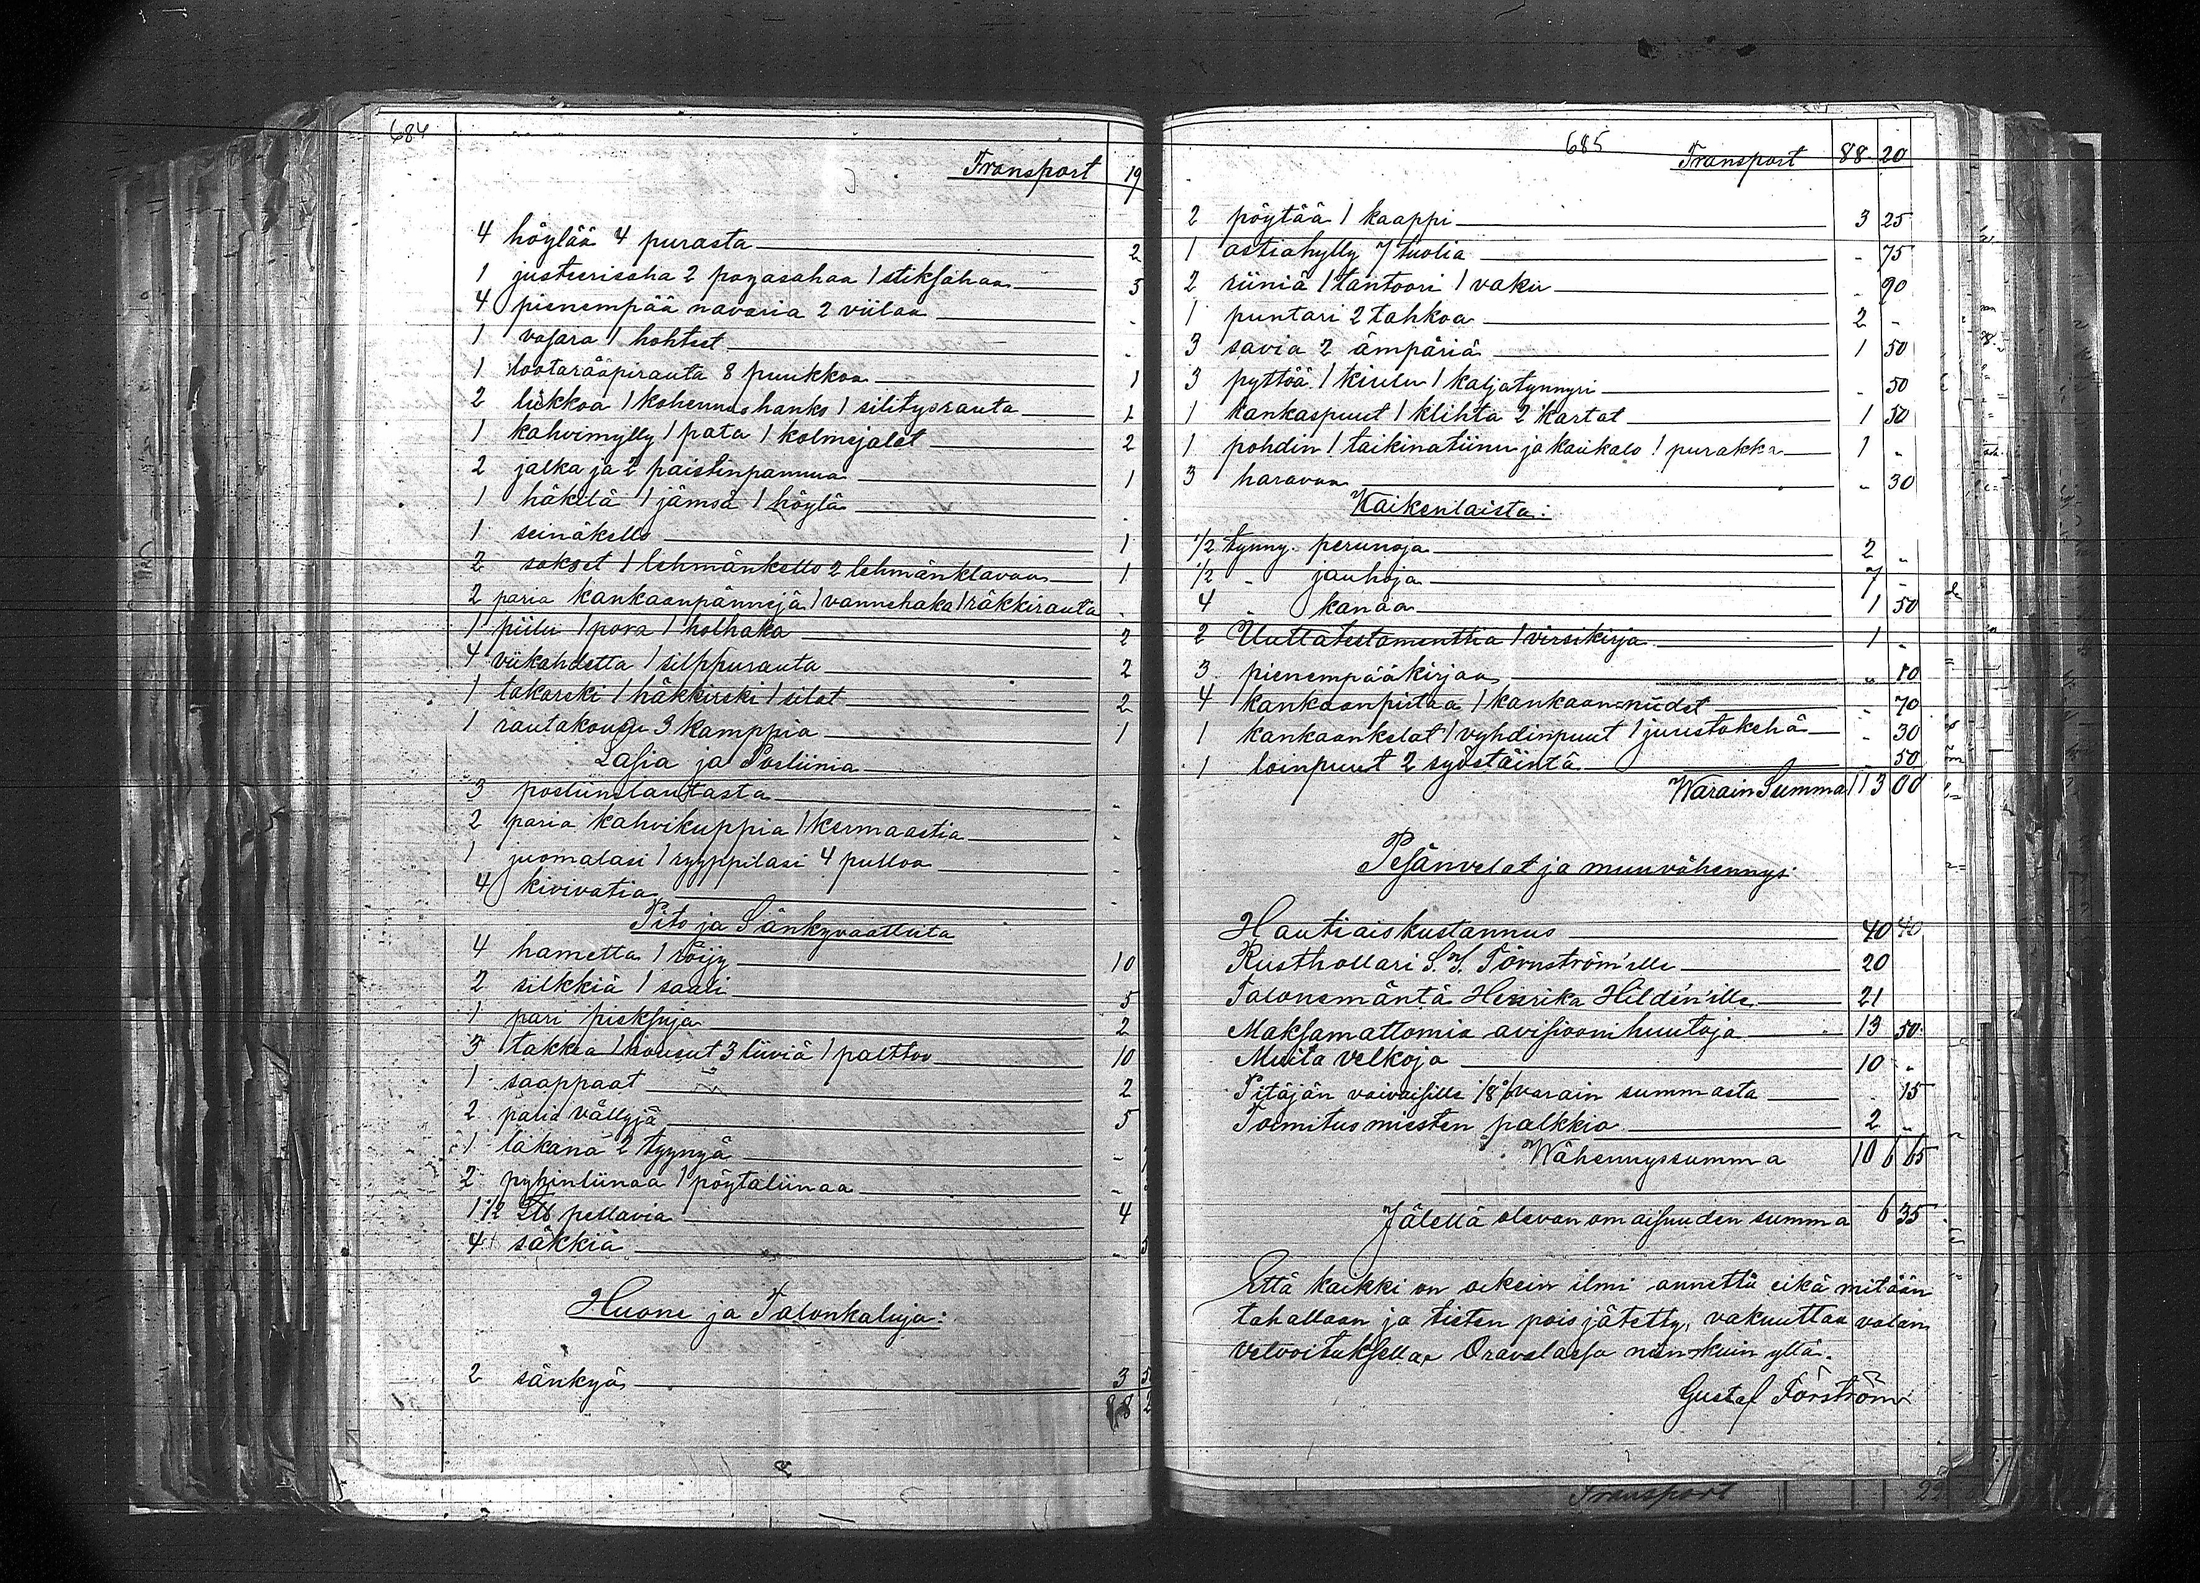 684
Transport 19
4 höylää 4 purasta 2
1 justeerisaha 2 pogasahaa 1 stiksahaa 3
4 pienempää navaria 2 viilaa -
1 vasara 1 hohtset -
1 lootarääpirauta 8 puukkoa 1
2 liikkoa 1 kohennushanko 1 silitysrauta 1
1 kahvimylly 1 pata 1 kolmejalat 2
2 jalka ja 2 paistinpannua 1
1 häkelä 1 jämsä 1 höylä -
1 seinäkello 1
2 sakset 1 lehmänkello 2 lehmänklavaa 1
2 paria kankaanpännejä 1 vannehaka 1 räkkirauta -
1 piilu 1 pora 1 holhaka 2
4 viikahdetta 1 silppurauta 2
1 takareki 1 häkkireki 1 silat 2
1 rautakouge 3 kamppia 1
Lasia ja Posliinia
3 posliinilautasta -
2 paria kahvikuppia 1 kermaastia -
1 juomalasi 1 ryyppilasi 4 pulloa -
4 kivivatia -
Pito ja Sänkyvaatteita
4 hametta 1 röijy 10
2 silkkiä 1 saali 5
1 pari pieksuja 2
3 takkia 1 housut 3 liiviä 1 palttoo 10
1 saappaat 2
2 paria vällyjä 5
1 lakana 2 tyynyä -
2 pyhinliinaa 1 pöytaliinaa -
1 1/2 pellavia 4
4 säkkiä -
Huone ja Talonkaluja:
2 sänkyä 3 5
88 2
685
Transport 88 20
2 pöytää 1 kaappi 3 25
1 astiahylly 7 tuolia - 75
2 riiniä 1 tantoori 1 vaku - 90
1 puntari 2 tahkoa 2 -
3 savia 2 ämpäriä 1 50
3 pyttöä 1 kiulu 1 kaljatynnyri - 50
1 kankaspuut 1 klihta 2 kartat 1 50
1 pohdin 1 taikinatiinu ja kaukalo 1 purakka 1 -
3 haravaa - 30
Kaikenlaista:
1/2 tynny. perunoja 2 -
1/2 - jauhoja 7 -
4 kanaa 1 50
2 Uuttatestamenttia 1 virsikirja 1 -
3 pienempää kirjaa - 10
4 kankaanpiitaa 1 kankaan-niidet - 70
1 kankaankelat 1 vyhdinpuut 1 juustokehä - 30
1 loinpuut 2 syöstäintä - 50
Warain Summa 113 00
Pesänvelat ja muu vähennys:
Hautiaiskustannus 40 40
Rusthollari S. J. Törnström'ille 20
Talonemäntä Henrika Hildén'ille 21
Maksamattomia avisioonihuutoja 13 50
Muita velkoja 10 -
Pitäjän vaivaisille 1/8 % varain summasta - 15
Toimitusmiesten palkkio 2 -
Wähennyssumma 106 65
Jälellä olevan omaisuuden summa 6 35
Että kaikki on oikein ilmi annettu eikä mitään
tahallaan ja tieten pois jätetty, vakuuttaa valan
velvoituksella, Oravalassa niinkuin yllä.
Gustaf Törström
Transport 22